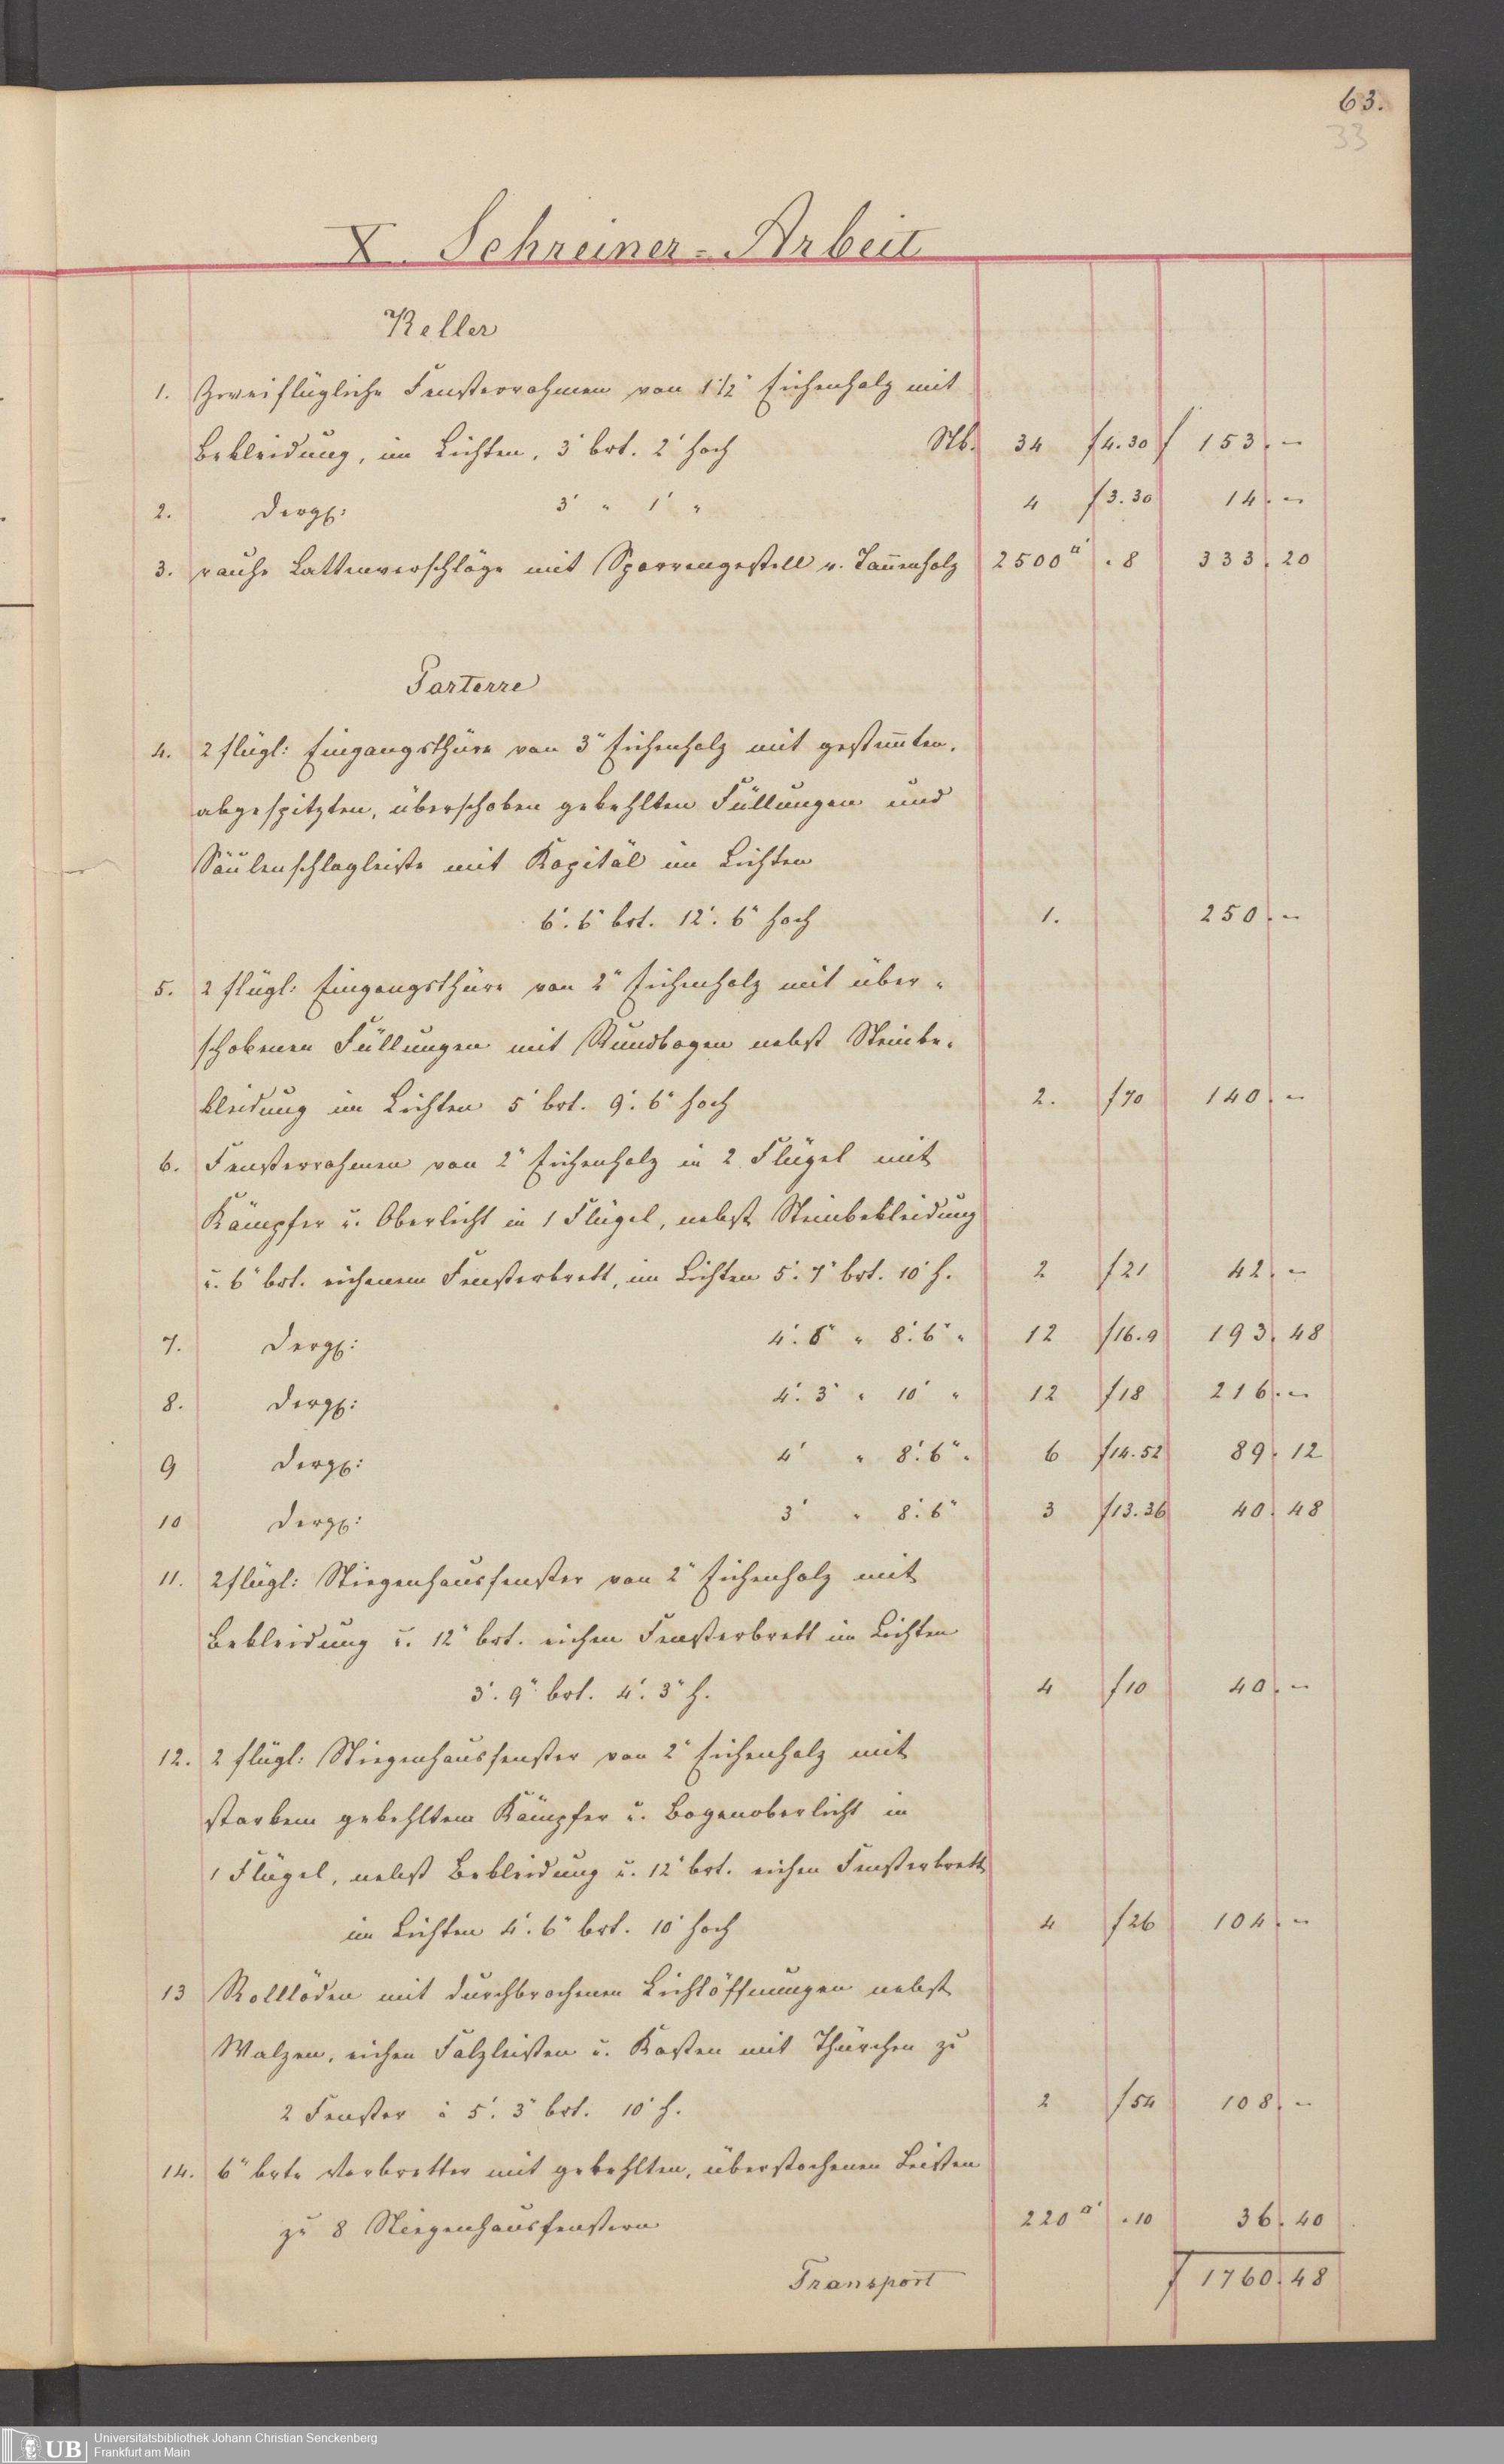 63.
33
X. Schreiner=Arbeit
Keller
1. Zweiflügliche Fensterrahmen von 1½" Eichenholz mit
Bekleidung, im Lichten, 3' brt. 2' hoch Stb. 34 f 4.30 f 153. –
2. dergl: 3' " 1' " 4 f 3.30 14. –
3. rauhe Lattenverschläge mit Sparrengestell v. Tan̄enholz 2500□' . 8 333. 20
Parterre
4. 2 flügl: Eingangsthüre von 3" Eichenholz mit gestem̄ten,
abgespitzten, überschoben gekehlten Füllungen und
Säulenschlagleiste mit Kapitäl im Lichten
6'. 6" brt. 12'. 6" hoch 1. 250. –
5. 2 flügl: Eingangsthüre von 2" Eichenholz mit über=
schobenen Füllungen mit Rundbogen nebst Steinbe=
kleidung im Lichten 5' brt. 9'. 6" hoch 2. f 70 140. –
6. Fensterrahmen von 2" Eichenholz in 2 Flügel mit
Kämpfer u. Oberlicht in 1 Flügel, nebst Steinbekleidung
u. 6" brt. eichenem Fensterbrett, im Lichten 5'. 7" brt. 10' h. 2 f 21 42. –
7. dergl: 4'. 6" " 8'. 6" " 12 f 16.9 193. 48
8. dergl: 4'. 3" " 10' " 12 f 18 216. –
9 dergl: 4' " 8'. 6" " 6 f 14.52 89. 12
10 dergl: 3' " 8'. 6" 3 f 13.36 40. 48
11. 2 flügl: Stiegenhausfenster von 2" Eichenholz mit
Bekleidung u. 12" brt. eichen Fensterbrett im Lichten
3'. 9" brt. 4'. 3" h. 4 f 10 40. –
12. 2 flügl: Stiegenhausfenster von 2" Eichenholz mit
starkem gekehltem Kämpfer u. Bogenoberlicht in
1 Flügel, nebst Bekleidung u. 12" brt. eichen Fensterbrett
im Lichten 4'. 6" brt. 10' hoch 4 f 26 104. –
13 Rollläden mit durchbrochenen Lichtöffnungen nebst
Walzen, eichen Falzleisten u. Kasten mit Thürchen zu
2 Fenster à 5'. 3" brt. 10' h. 2 f 54 108. –
14. 6" brte Vorbretter mit gekehlten, überstochenen Leisten
zu 8 Stiegenhausfenstern 220□' . 10 36. 40
Transport f 1760. 48
UB
Universitätsbibliothek Johann Christian Senckenberg
Frankfurt am Main